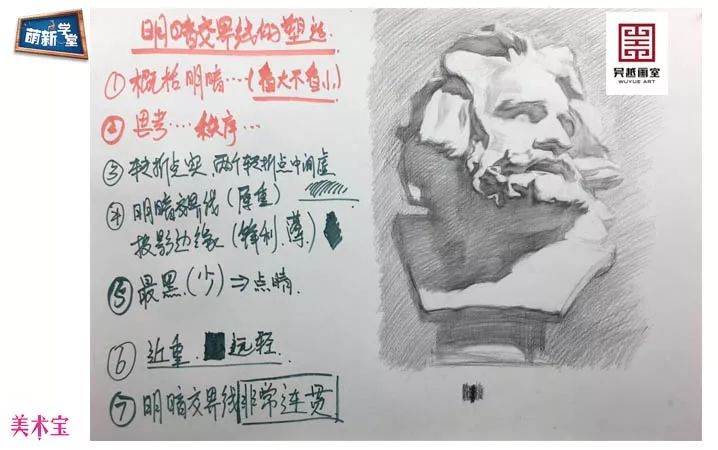 萌新学堂
明暗交界线的塑造
① 概括明暗…(看大不看小)
② 思考…秩序…
③ 转折点实 两个转折点中间虚
④ 明暗交界线(厚重)
投影边缘(锋利.薄.)
⑤ 最黑.(少)⇒点睛.
⑥ 近重. 远轻.
⑦ 明暗交界线非常连贯
吴越画室
WUYUE ART
美术宝